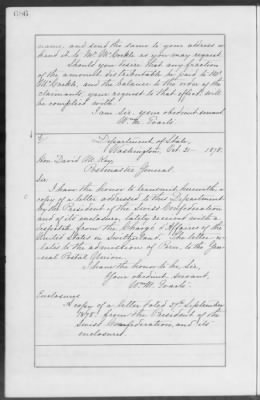 686
name, and send the same to your address or
hand it to Mr. McCorkle as you may request.
Should you desire that any portion
of the amount distributable be paid to Mr.
McCorkle, and the balance to the order of the
claimants your request to that effect will
be complied with.
I am Sir, your obedient servant
Wm. M. Evarts.
Department of State,
Washington, Oct. 21 1878.
Hon. David M. Key,
Postmaster General.
Sir:
I have the honor to transmit herewith a
copy of a letter addressed to this Department
by the President of the Swiss Confederation
and of its enclosure, lately received with a
despatch from the Chargé d'Affaires of the
United States in Switzerland. The letter re-
lates to the admission of Peru, to the Gene-
ral Postal Union.
I have the honor to be, Sir,
Your obedient servant,
Wm. M. Evarts.
Enclosure
A copy of a letter dated 27th September
1878 from the President of the
Swiss Confederation, and its
enclosure.